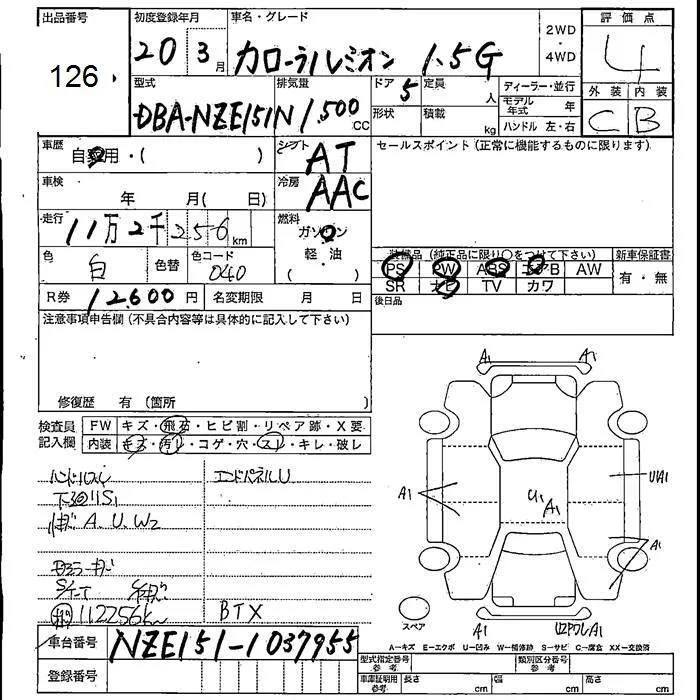 出品番号 初度登録年月 車名・グレード 2WD・4WD 評価点
126 20 3月 カローラルミオン 1.5G 4
型式 排気量 ドア 5 定員 人 ディーラー・並行 外装 内装
DBA-NZE151N 1,500 CC 形状 積載 kg モデル年式 年 C B
ハンドル 左・右
車歴 自家用・( ) シフト AT セールスポイント(正常に機能するものに限ります)
車検 年 月( 日) 冷房 AAC
走行 11万2千256km 燃料 ガソリン
軽・油
( )
色 白 色替 色コード 040
装備品(純正品に限り○をつけて下さい) 新車保証書
PS PW ABS エアB AW 有・無
SR ナビ TV カワ
R券 12,600円 名変期限 月 日 後日品
注意事項申告欄(不具合内容等は具体的に記入して下さい)
修復歴 有(箇所 )
検査員記入欄 FW キズ・飛石・ヒビ割・リペア跡・X要
内装 キズ・汚レ・コゲ・穴・スレ・キレ・破レ
ハンドルスレ エンドパネルU
下廻りS1
A.U.W2
112256km BTX
A1 A1
A1 U1 A1 U1A1
A1
スペア A1 A1
A-キズ E-エクボ U-凹み W-補修跡 S-サビ C-腐食 XX-交換済
車台番号 NZE151-1037955 型式指定番号 参考 類別区分番号 参考
登録番号 車庫証明用 参考 長さ cm 幅 cm 高さ cm